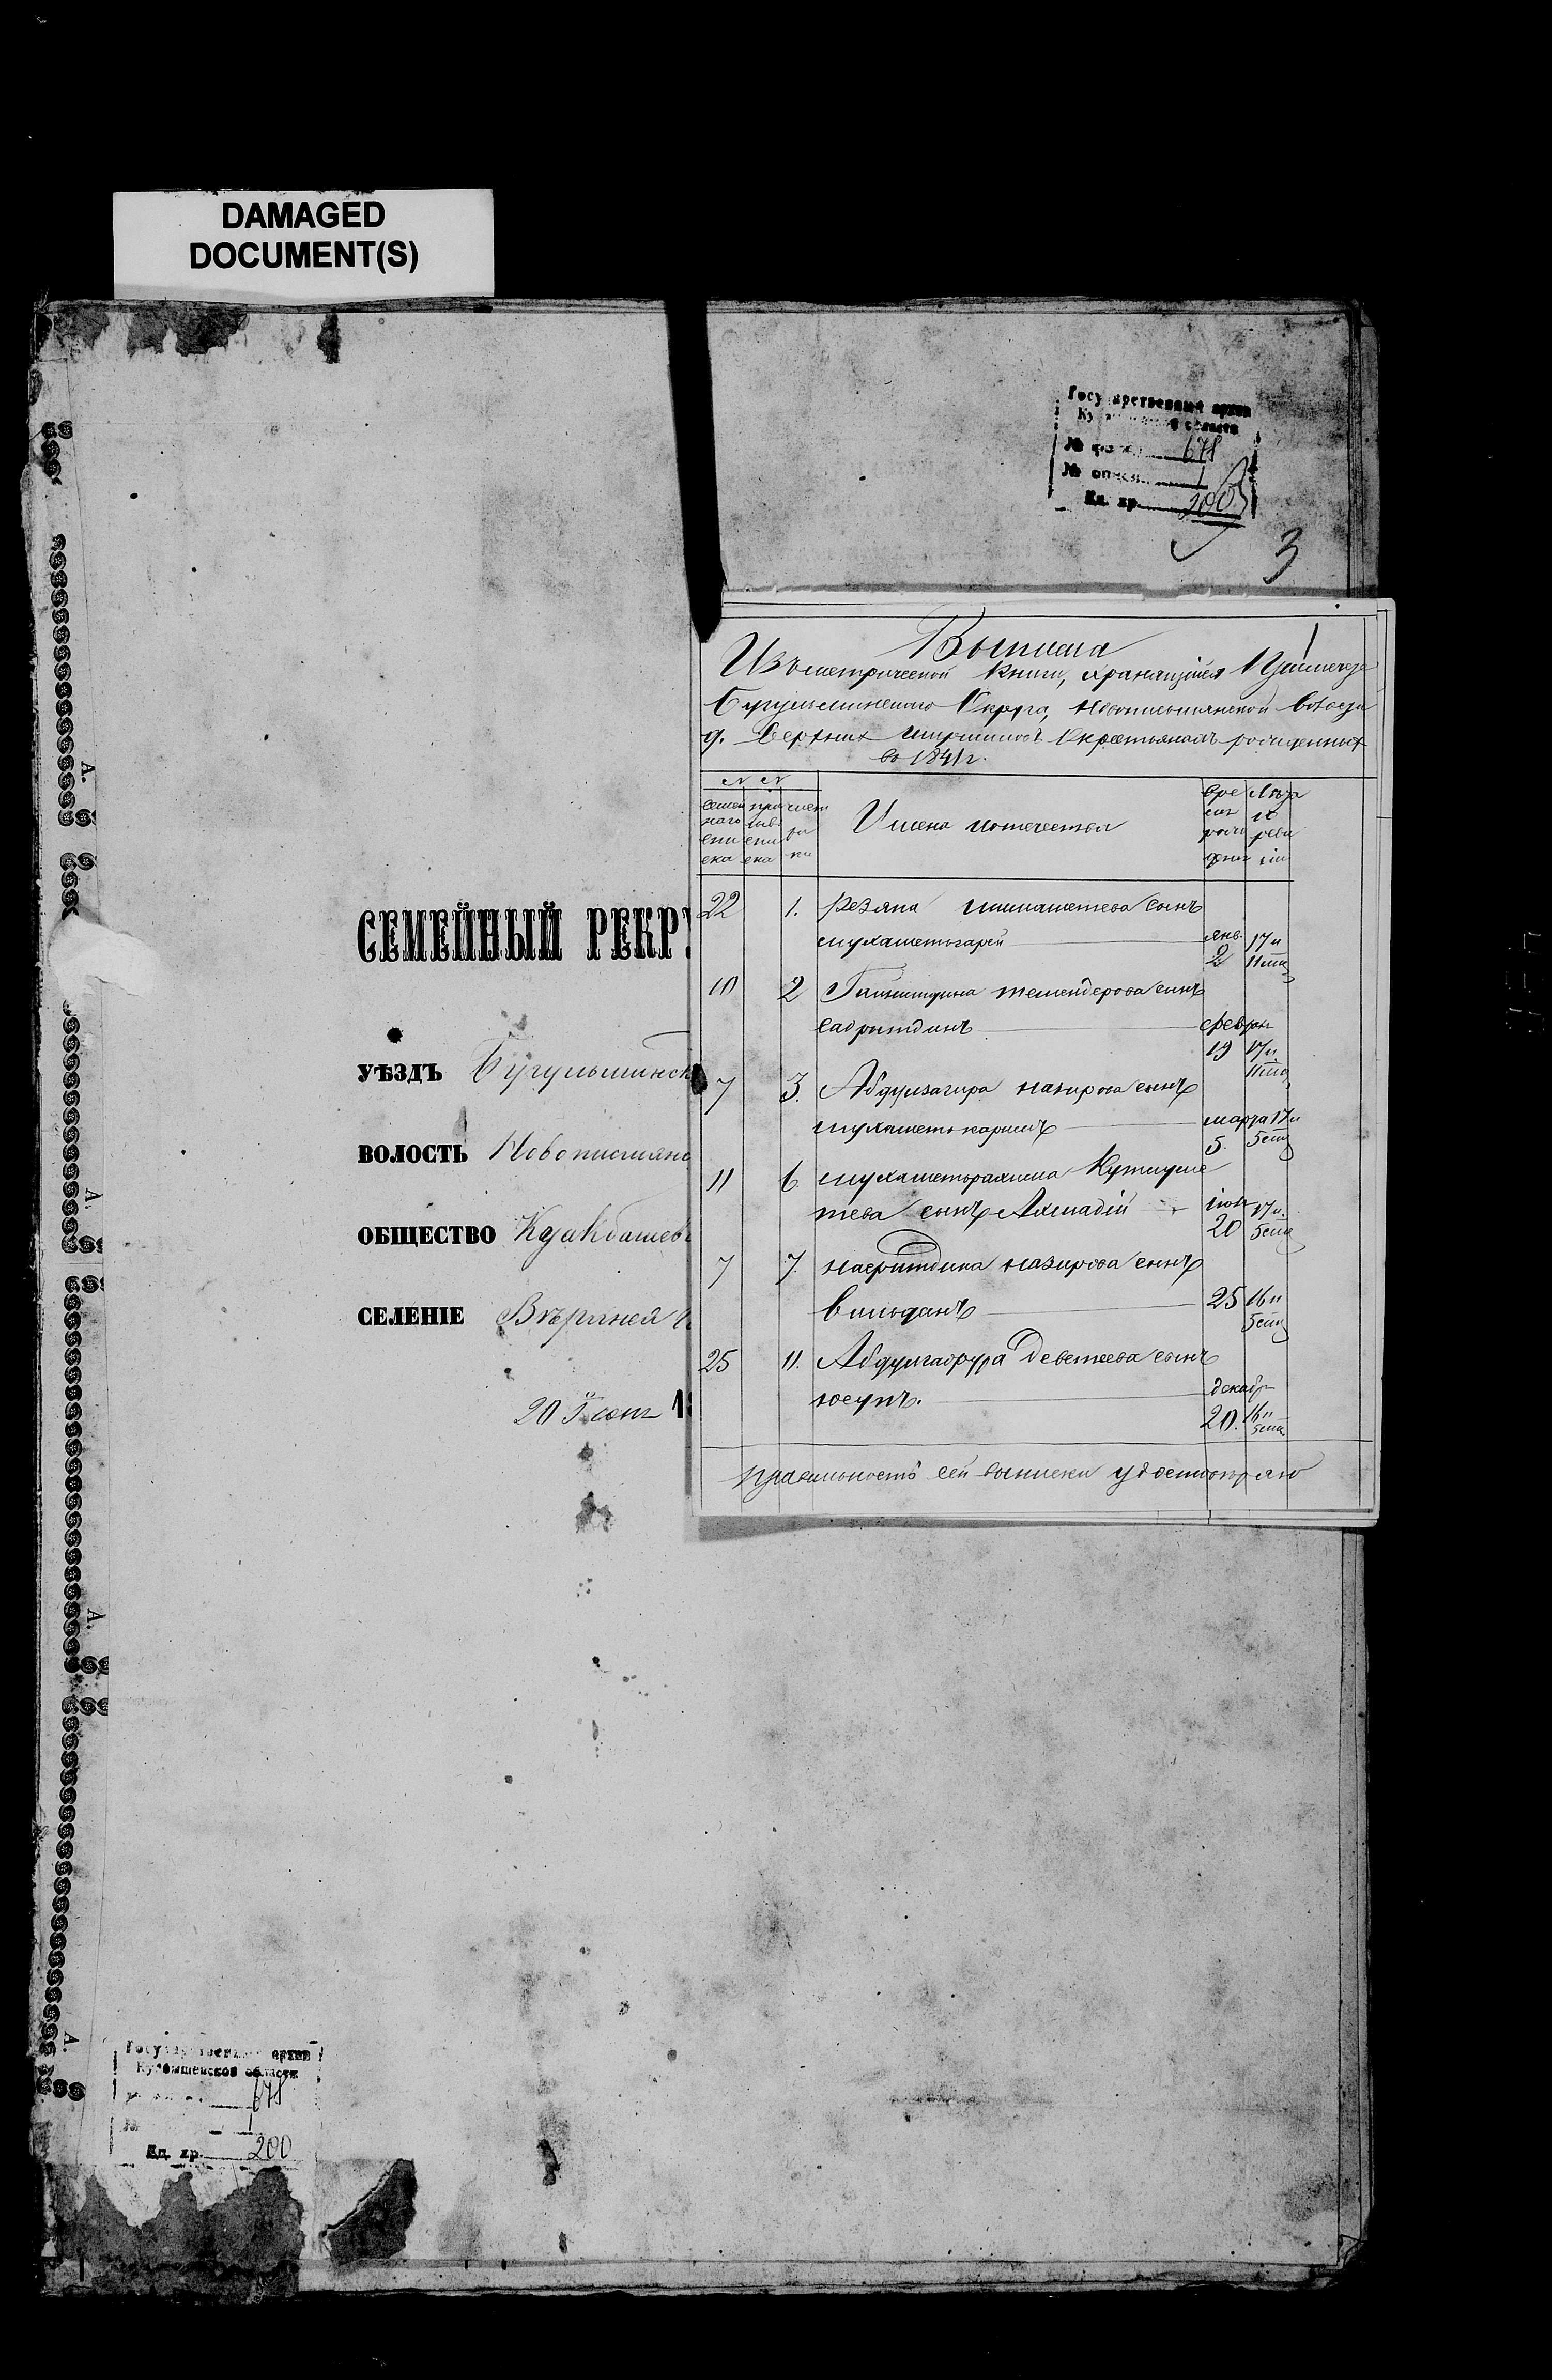 DAMAGED
DOCUMENT(S)
Государственный архив
Куйбышевской области
№ фонда 678
№ описи 1
Ед. хр. 200
3
СЕМЕЙНЫЙ РЕКР
УѢЗДЪ Бугульминск
ВОЛОСТЬ Новописмянс
ОБЩЕСТВО Куакбашев
СЕЛЕНІЕ Верхней
20 Іюня 1
Выписка 1
Изъ метрической книги, хранящійся
Бугульминскаго Округа, Новописмянской волости
д. Верхних крестьянамъ рожденных
въ 1841 г.
№ №
Имена и отчества
22 1. Резяпа Ишмаметева сынъ
мухаметьгарей янв. 2 17 и 11 мц
10 2 Гайнитдина темендерова сынъ
садритдинъ феврал 19 17 и 11 мц
7 3. Абдулзагира назирова сынъ
мухаметькаримъ марта 5. 17 и 5 мц
11 6 мухаметьрахима Кутлуме
тева сынъ Ахмадій іюня 20 17 и 5 мц
7 7. насритдина назирова сынъ
вилданъ 25 16 и 5 мц
25 11. Абдулгафура Деветеева сынъ
юсупъ. декабр 20. 16 и 5 мц
правильность сей выписки удостоверяю
А.
А.
А.
А.
Государственный архив
Куйбышевской области
678
1
Ед. хр. 200